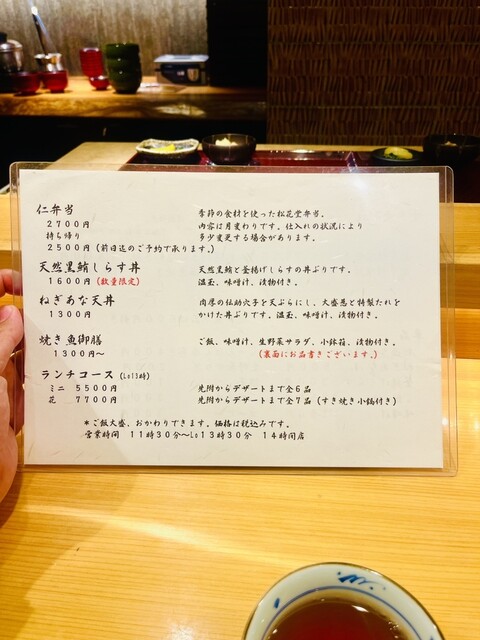 仁弁当 季節の食材を使った松花堂弁当。
2700円 内容は月変わりです。仕入れの状況により
持ち帰り 多少変更する場合があります。
2500円(前日迄のご予約で承ります。)
天然黒鮪しらす丼 天然黒鮪と釜揚げしらすの丼ぶりです。
1600円(数量限定) 温玉、味噌汁、漬物付き。
ねぎあな天丼 肉厚の伝助穴子を天ぷらにし、大盛葱と特製たれを
1300円 かけた丼ぶりです。温玉、味噌汁、漬物付き。
焼き魚御膳 ご飯、味噌汁、生野菜サラダ、小鉢箱、漬物付き。
1300円～ (裏面にお品書きございます。)
ランチコース(Lo13時)
ミニ 5500円 先附からデザートまで全6品
花 7700円 先附からデザートまで全7品(すき焼き小鍋付き)
*ご飯大盛、おかわりできます。価格は税込みです。
営業時間 11時30分～Lo13時30分 14時閉店